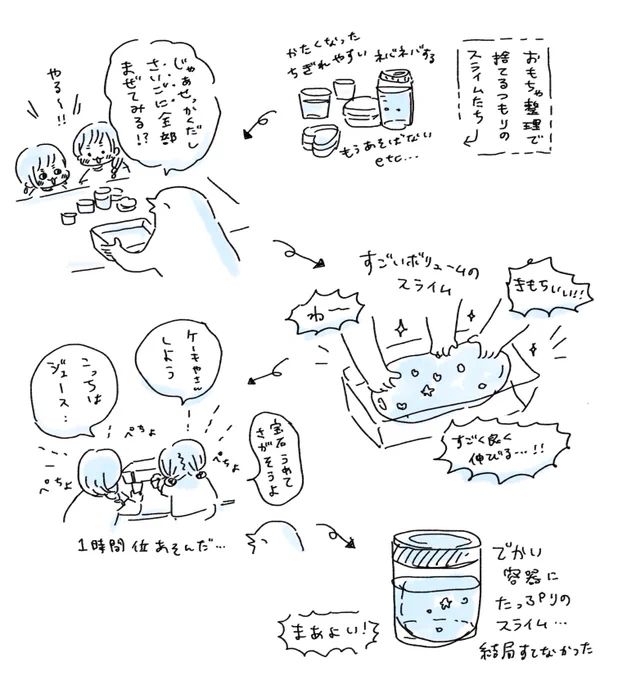 おもちゃ整理で
捨てるつもりの
スライムたち
かたくなった
ちぎれやすい
ネバネバする
もうあそばない
etc...
じゃあせっかくだし
さいごに全部
まぜてみる!?
やる〜!!
すごいボリュームの
スライム
きもちいい!!
わー
すごく良く
伸びる…!!
ケーキやさん
しよう
こっちは
ジュース…
ぺちょ
ぺちょ
ぺちょ
宝石うめて
さがそうよ
1時間位あそんだ…
でかい
容器に
たっぷりの
スライム…
結局すてなかった
まあよい!